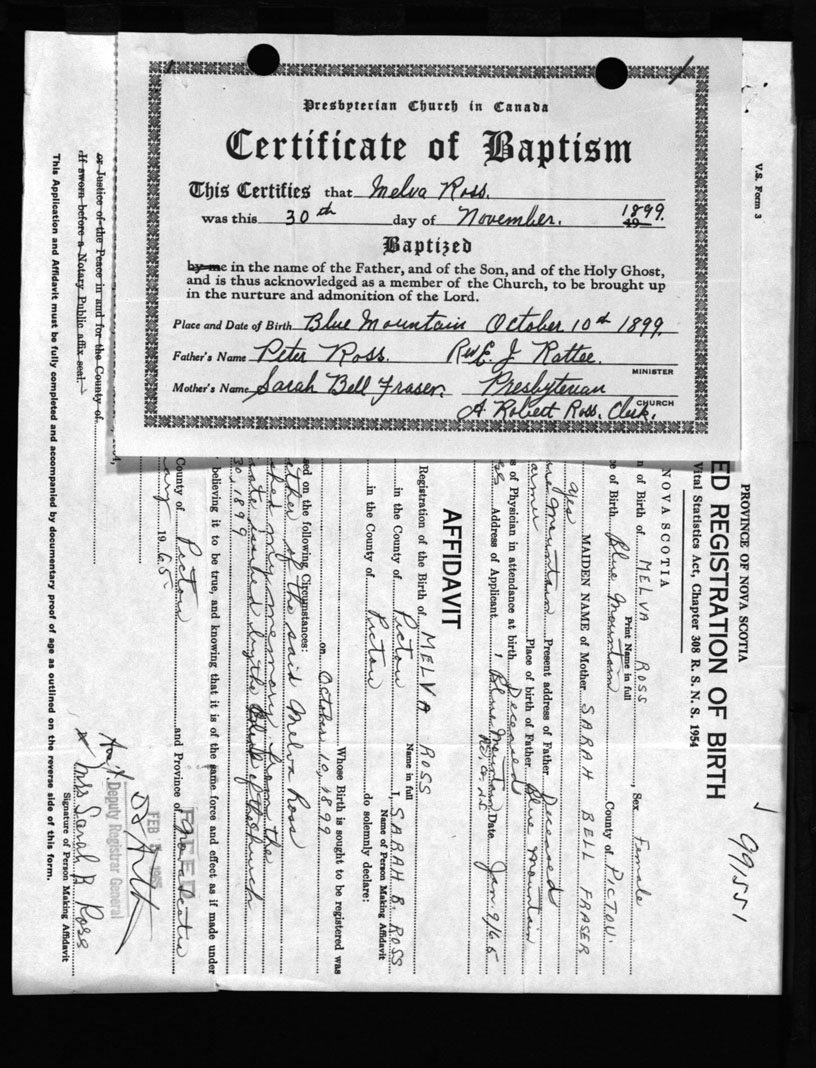 Presbyterian Church in Canada
Certificate of Baptism
This Certifies that Melva Ross.
was this 30th day of November. 1899. 19
Baptized
by me in the name of the Father, and of the Son, and of the Holy Ghost,
and is thus acknowledged as a member of the Church, to be brought up
in the nurture and admonition of the Lord.
Place and Date of Birth Blue Mountain October 10th 1899.
Father's Name Peter Ross. Rev E. J. Rattee.
MINISTER
Mother's Name Sarah Bell Fraser. Presbyterian
CHURCH
A. Robert Ross, Clerk.
V.S. Form 3
991551
PROVINCE OF NOVA SCOTIA
ED REGISTRATION OF BIRTH
Vital Statistics Act, Chapter 308 R. S. N. S. 1954
NOVA SCOTIA
n of Birth of MELVA ROSS, Sex Female
Print Name in full
ce of Birth Blue Mountain County of PICTOU.
Yes MAIDEN NAME of Mother SARAH BELL FRASER
Mountain Present address of Father Deceased
armer Place of birth of Father Blue Mountain
s of Physician in attendance at birth Deceased
Address of Applicant Blue Mountain Date Jan. 9/65
AFFIDAVIT
Registration of the Birth of MELVA ROSS
Name in full
in the County of Pictou I, SARAH B. ROSS
Name of Person Making Affidavit
in the County of Pictou do solemnly declare:
Whose Birth is sought to be registered was
on October 10, 1899
sed on the following Circumstances:
other of the said Melva Ross
my memory from the
issued by the Clerk of the Church
30, 1899
believing it to be true, and knowing that it is of the same force and effect as if made under
County of Pictou and Province of Nova Scotia
ary 1965
FILED
FEB 1965
Deputy Registrar General
Mrs Sarah B Ross
Signature of Person Making Affidavit
or Justice of the Peace in and for the County of
If sworn before a Notary Public affix seal.
This Application and Affidavit must be fully completed and accompanied by documentary proof of age as outlined on the reverse side of this form.